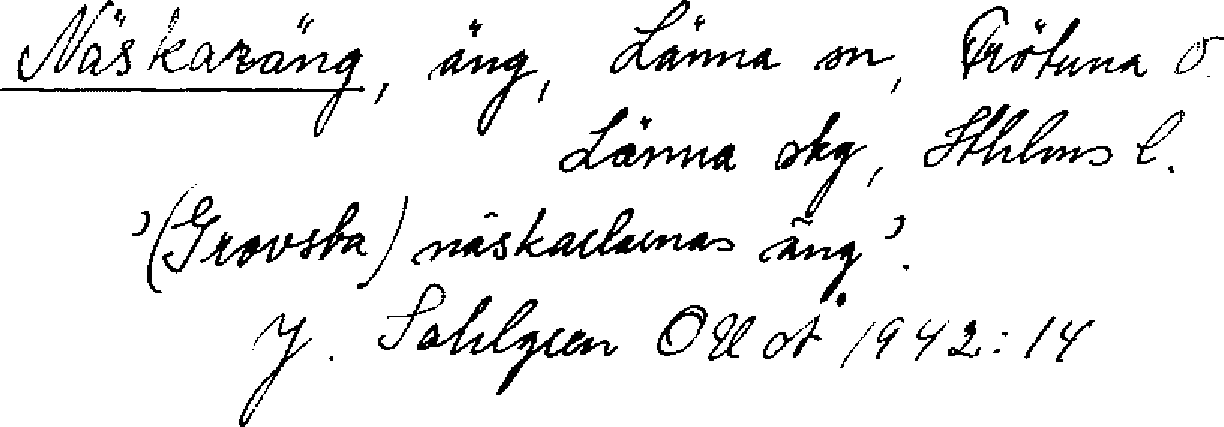 Näskaräng, äng, Länna sn, Frötuna o.
Länna skg, Sthlms l.
'(Gravsta) näskarlarnas äng'.
J. Sahlgren OUÅ 1942:14